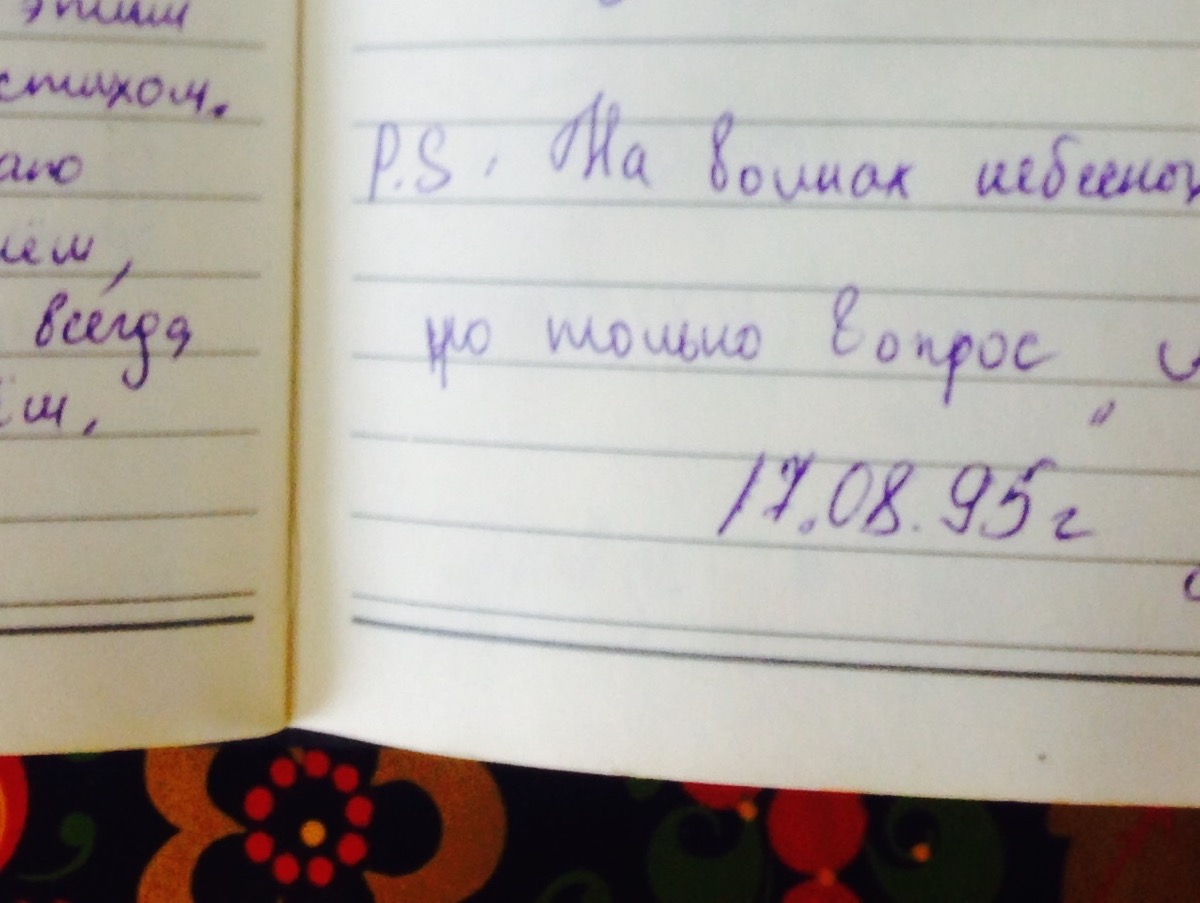 этим
стихом.
всегда
P.S. На волнах небесной
но только вопрос
17.08.95г